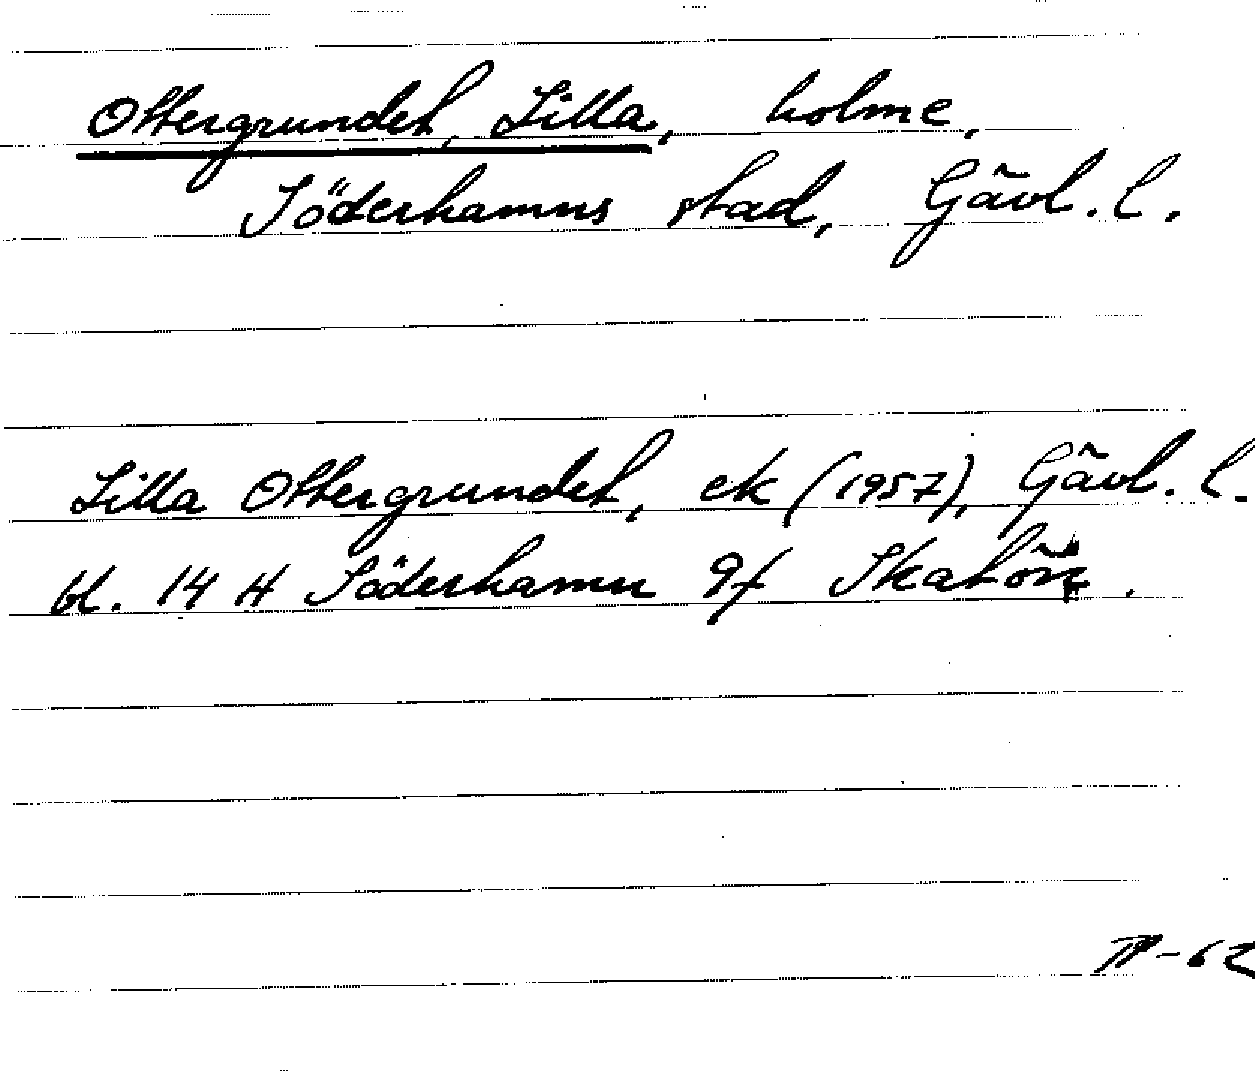 Ottergrundet, Lilla, holme,
Söderhamns stad, Gävl. l.
Lilla Ottergrundet, ek (1957), Gävl. l.
bl. 14 H Söderhamn 9f Skatön.
-62